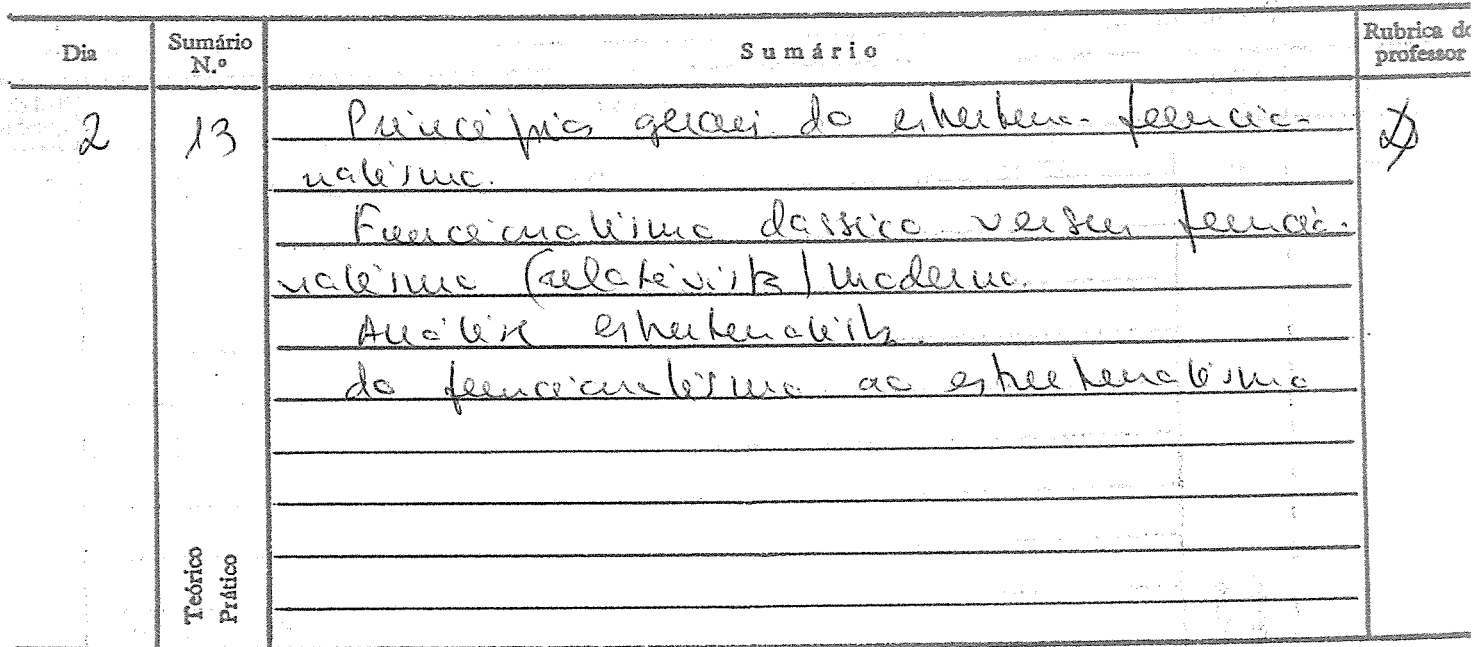 Dia
Sumário N.º
Sumário
Rubrica do professor
2
13
Princípios gerais do estruturo-funcio-
nalismo.
Funcionalismo classico versus funcio-
nalismo (relativista) moderno.
Análise estruturalista.
do funcionalismo ao estruturalismo
Teórico
Prático